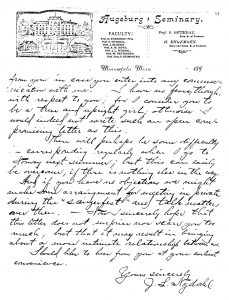 Augsburg Seminary.
FACULTY:
Minneapolis, Minn. 189
from you in case you enter into any commu-
nication with me. I have no fears, though,
with respect to you, for I consider you to
be a true and upright girl, otherwise I
would indeed not write such an open com-
promising letter as this.
There will perhaps be some difficulty
in corresponding regularly when I go to
Norway next summer, but this can easily
be overcome, if there is nothing else in the way.
And if you have no objection, we might
make some arrangement for meeting in private
during the "Sangerfest" and talk matters
over then. — Now I sincerely hope that
this letter does not surprise nor scare you too
much, but that it may result in bringing
about a more intimate relationship between us.
I should like to hear from you at your earliest
convenience.
Yours sincerely
J. L. Nydahl